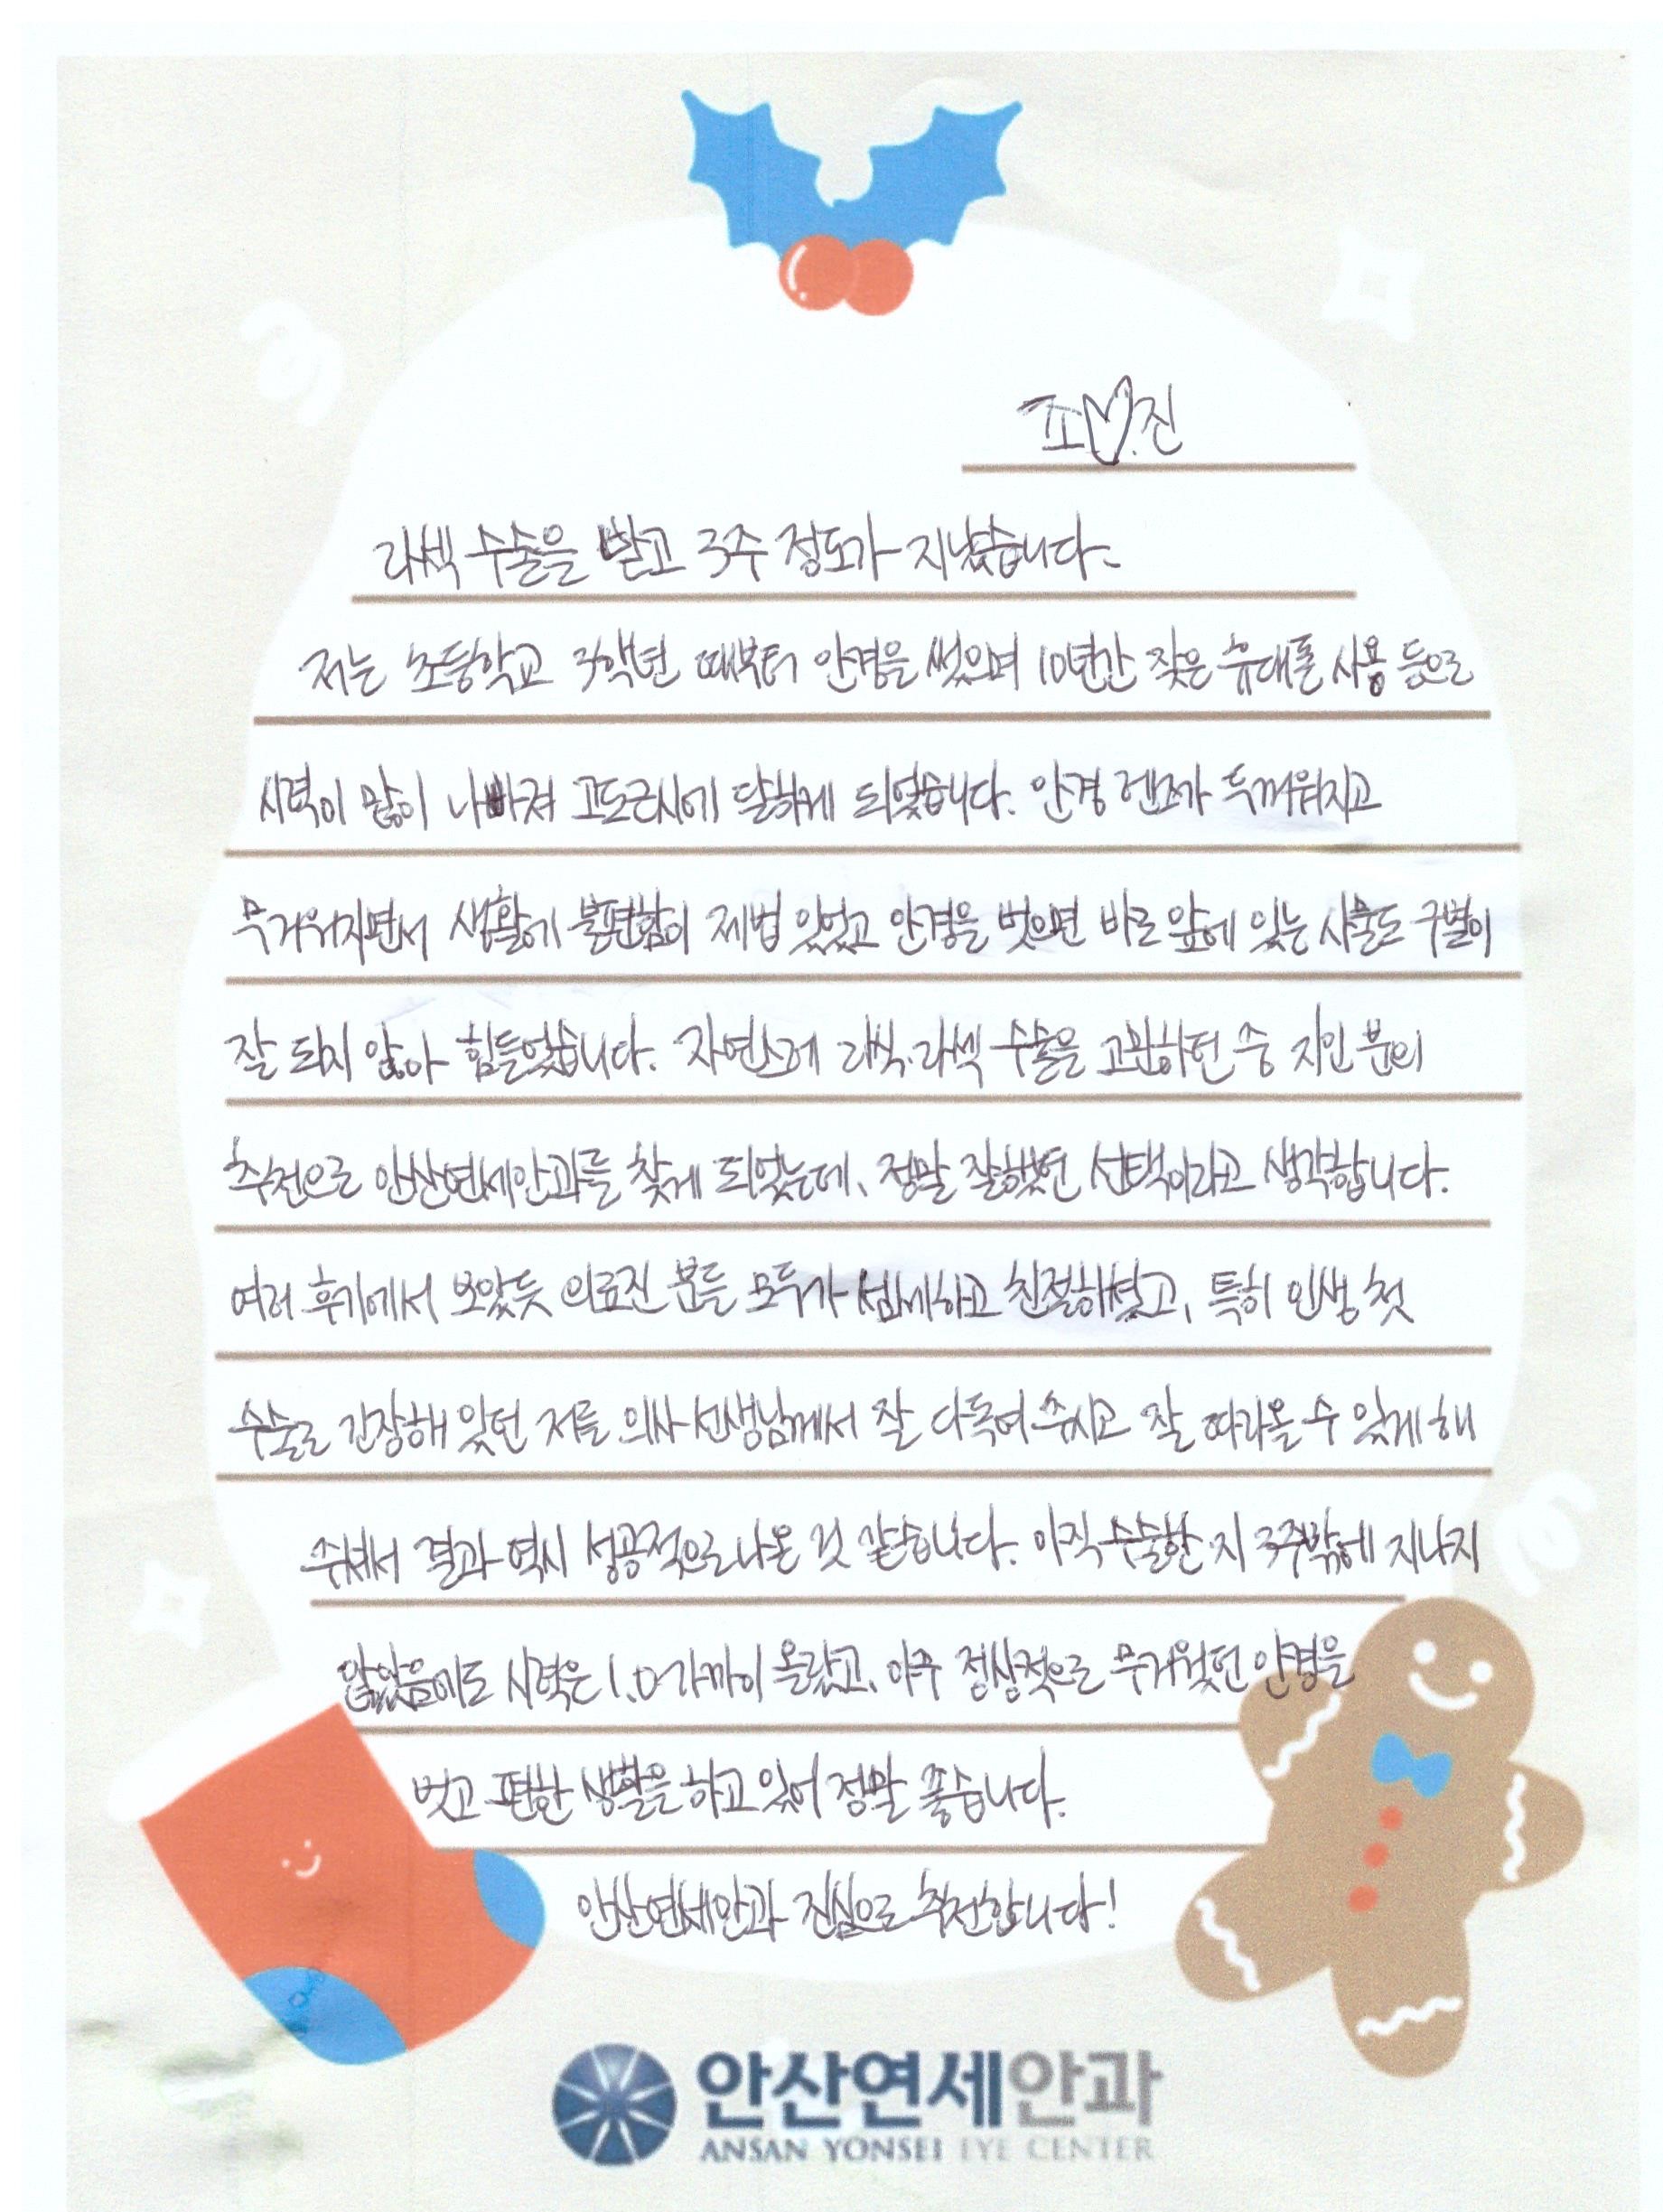 조♡진
라섹 수술을 받고 3주 정도가 지났습니다.
저는 초등학교 3학년 때부터 안경을 썼으며 10년간 잦은 휴대폰 사용 등으로
시력이 많이 나빠져 고도근시에 달하게 되었습니다. 안경 렌즈가 두꺼워지고
무거워지면서 생활에 불편함이 제법 있었고 안경을 벗으면 바로 앞에 있는 사물도 구별이
잘 되지 않아 힘들었습니다. 자연스레 라식·라섹 수술을 고려하던 중 지인 분의
추천으로 안산연세안과를 찾게 되었는데, 정말 잘했던 선택이라고 생각합니다.
여러 후기에서 보았듯 의료진 분들 모두가 섬세하고 친절하셨고, 특히 인생 첫
수술로 긴장해 있던 저를 의사 선생님께서 잘 다독여 주시고 잘 따라올 수 있게 해
주셔서 결과 역시 성공적으로 나온 것 같습니다. 아직 수술한 지 3주밖에 지나지
않았음에도 시력은 1.0 가까이 올랐고, 아주 정상적으로 무거웠던 안경을
벗고 편한 생활을 하고 있어 정말 좋습니다.
안산연세안과 진심으로 추천합니다!
안산연세안과
ANSAN YONSEI EYE CENTER